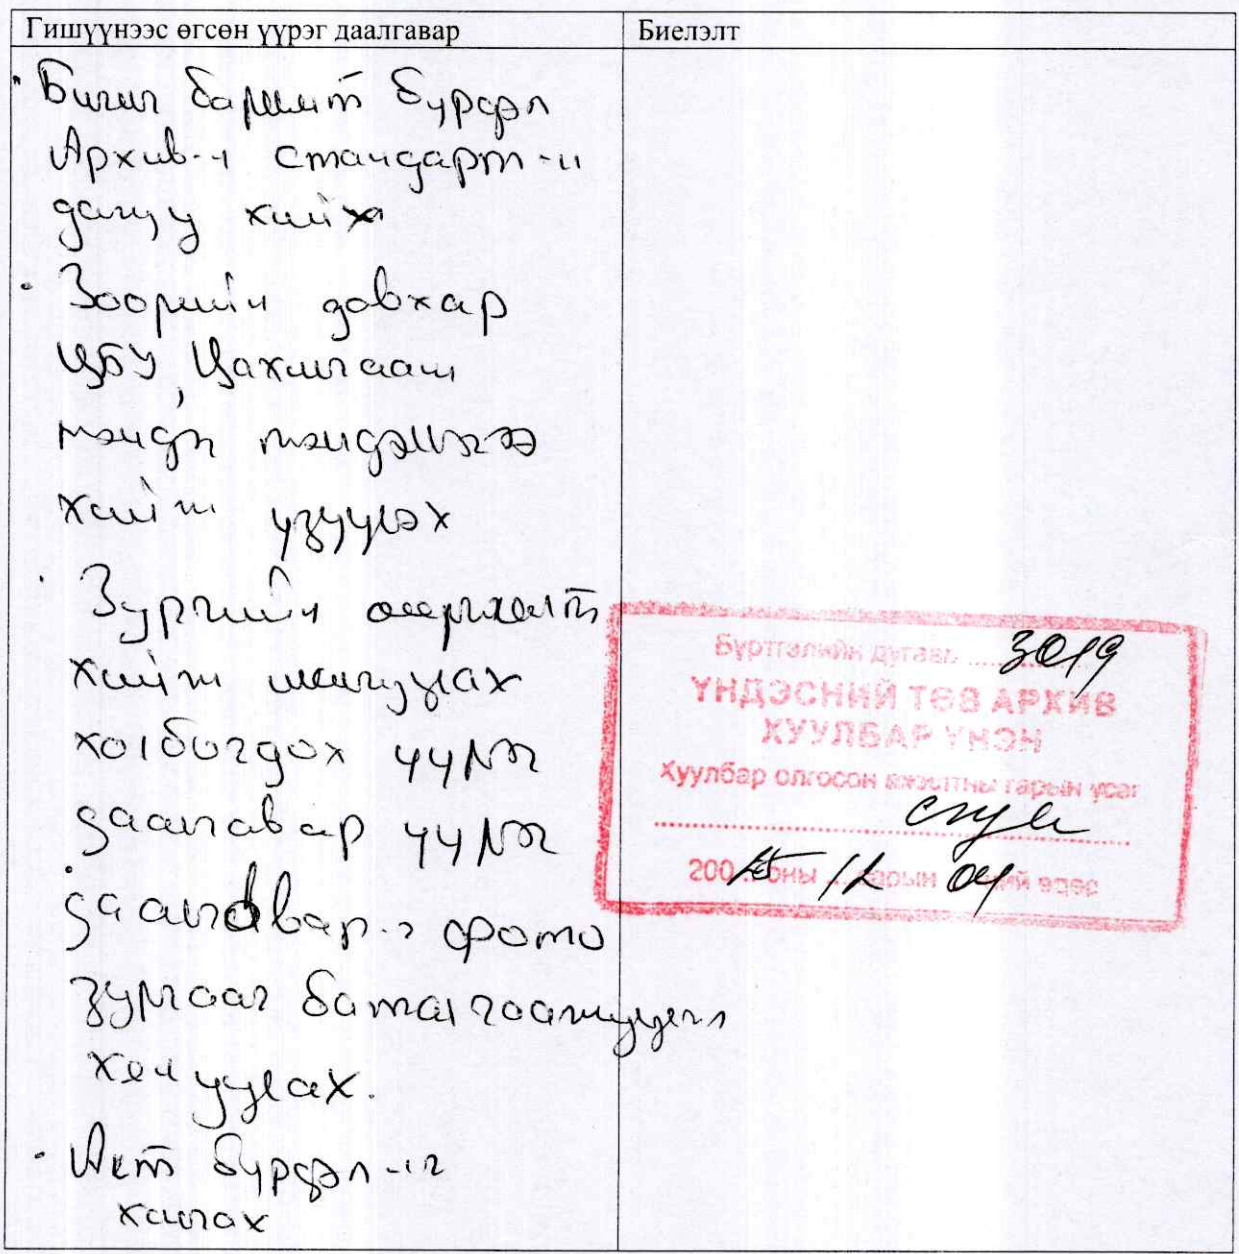 Гишүүнээс өгсөн үүрэг даалгавар
Биелэлт
Бичиг баримт бүрдэл
Архив-н стандарт-н
дагуу хийх
Зоорийн давхар
ЦБУ, Цахилгаан
хийж үзүүлэх
Зургийн
хийж
холбогдох үүрэг
даалгавар үүрэг
даалгавар-г фото
зургаар баталгаажуулж
хянуулах.
Акт бүрдэл-иг
хангах
Бүртгэлийн дугаар ........ 3019
ҮНДЭСНИЙ ТӨВ АРХИВ
ХУУЛБАР ҮНЭН
Хуулбар олгосон ажилтны гарын үсэг
200 оны 12 сарын 04 ний өдөр